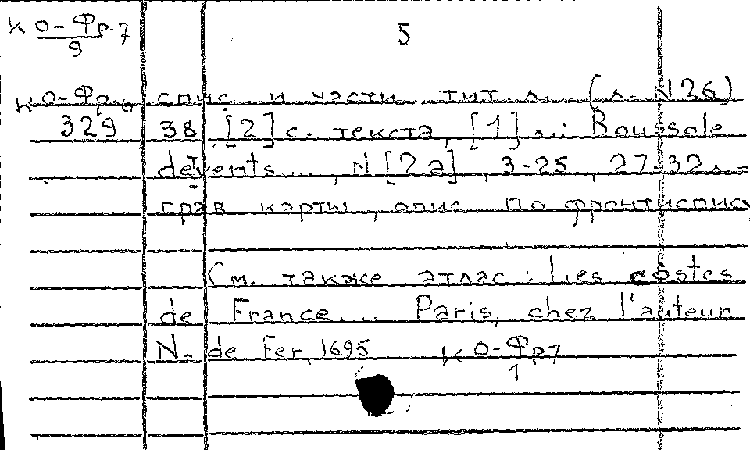 К О-Фр.7
9
5
К О-Фр.7 спис. и части тит. л. (л. N 26)
329 38, [2] с. текста, [1] л.: Boussole
de vents..., N [2a], 3-25, 27-32 л.=
грав. карты, опис. по фронтиспису
См. также атлас: Les côstes
de France... Paris, chez l'auteur
N. de Fer, 1695 К О-Фр7
1